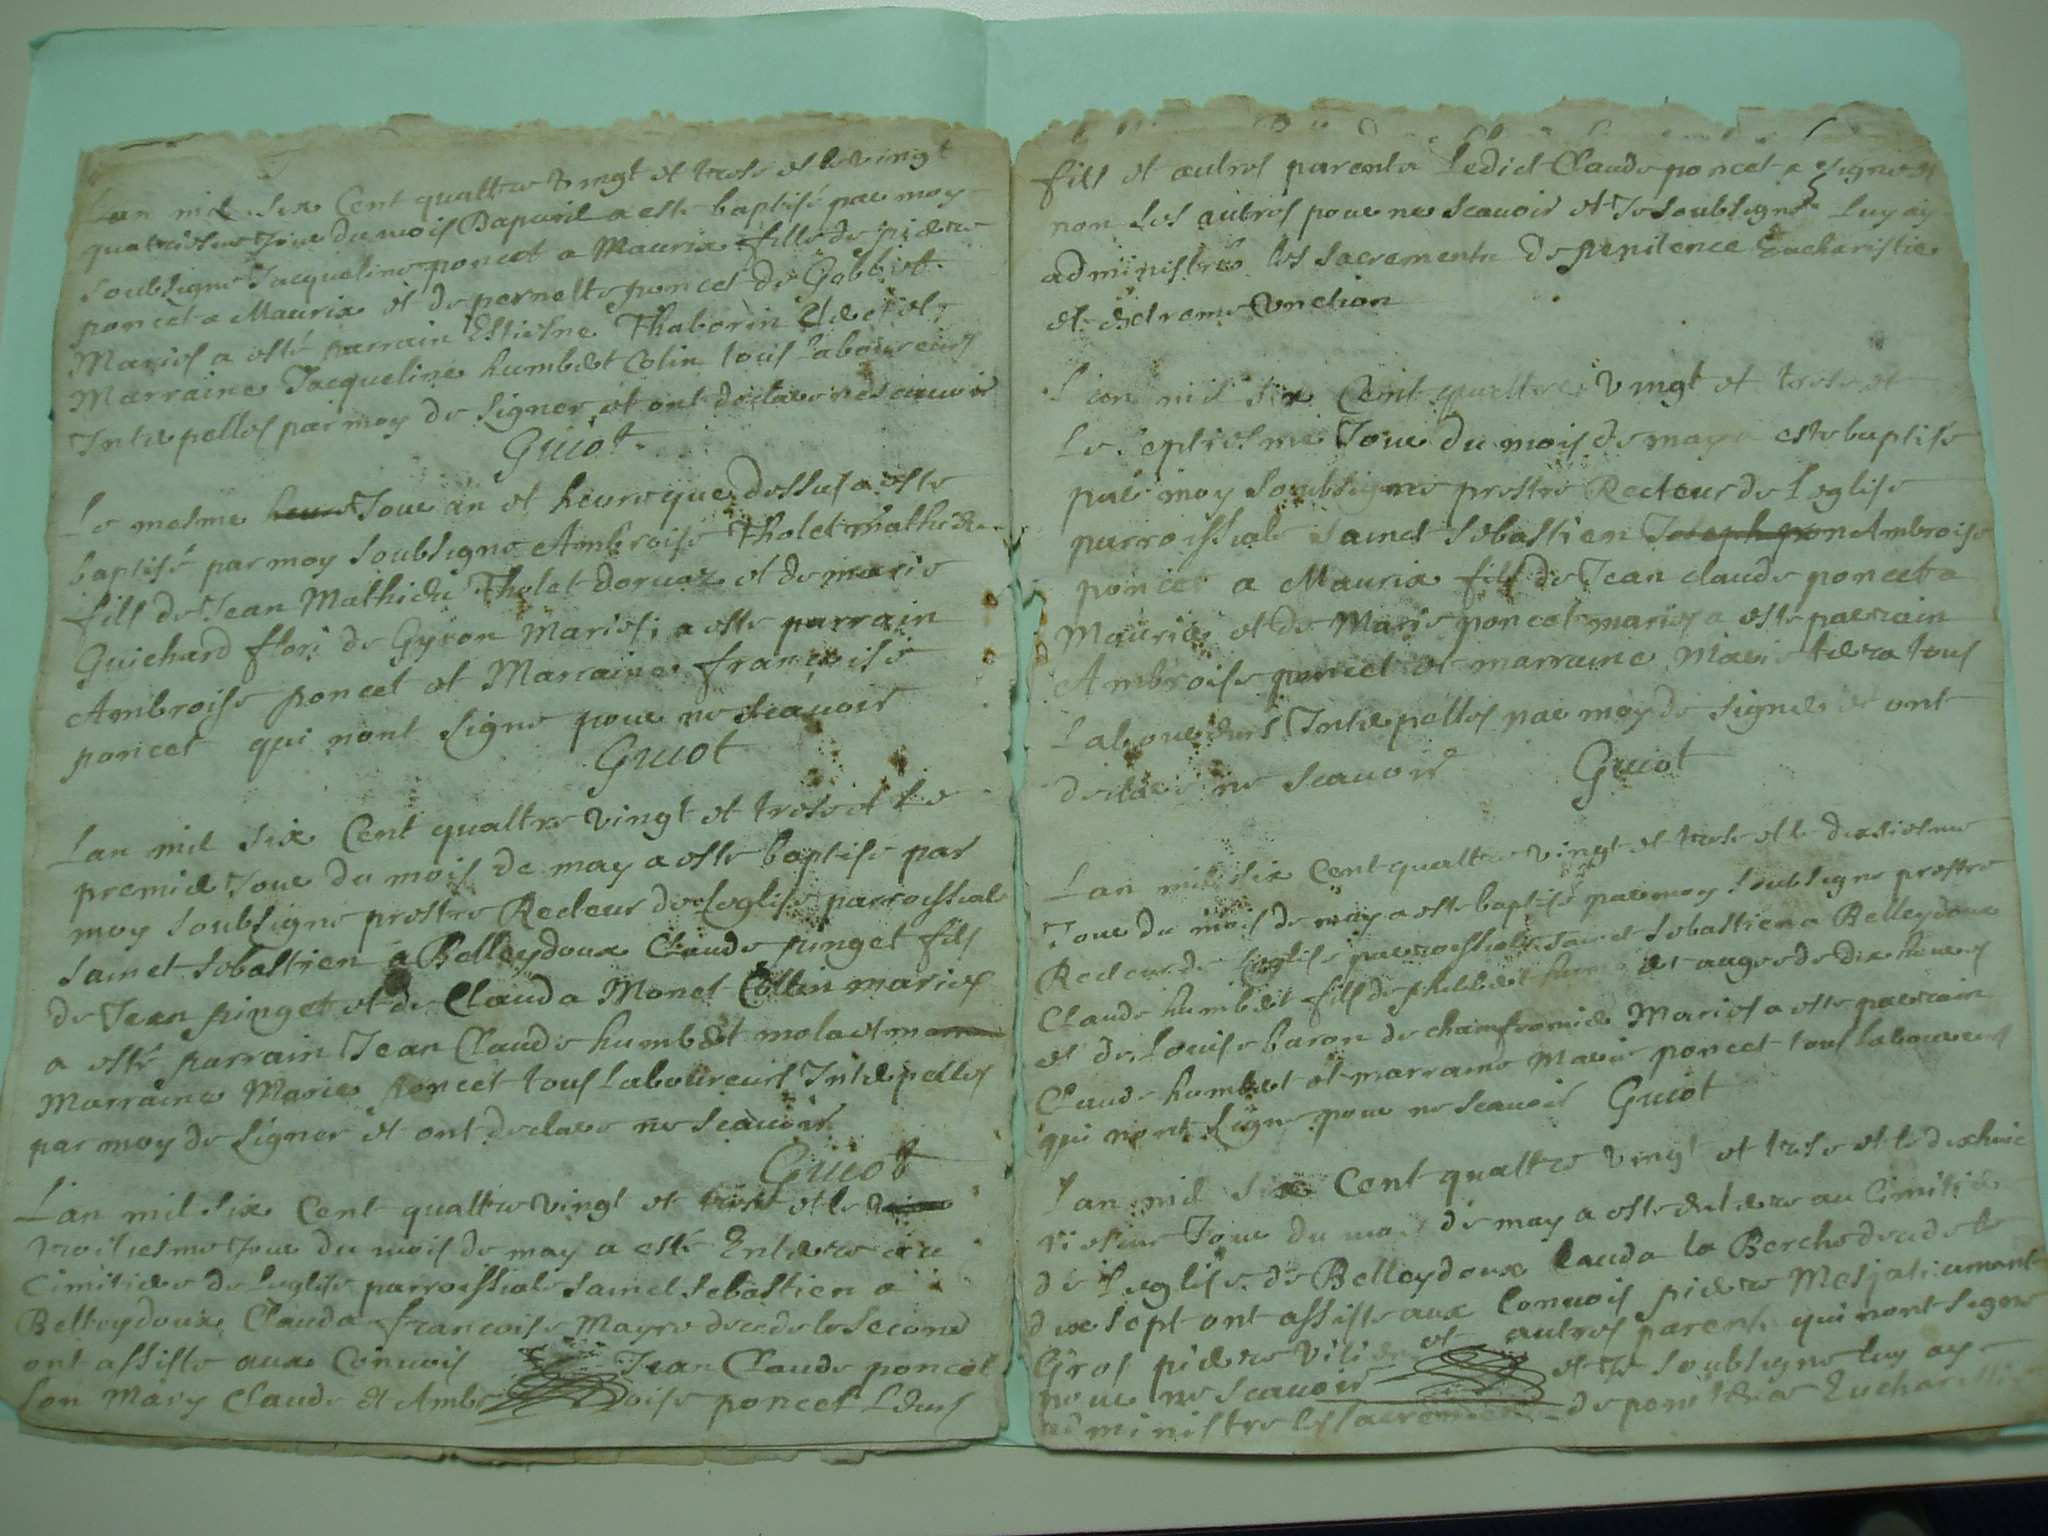 Lan mil six Cent quattre vingt et trese et le vingt
quatriesme Jour du mois Dapuril a este baptisé par moy
soubsigne Jacqueline poncet a Mauria fille de pierre
poncet a Mauria et de pernette poncet de Gobbet
Maries a esté parrain Estiesne Thaborin et
Marraine Jacqueline humbert Colin tous laboureurs
Interpelles par moy de signer et ont declare ne scauoir
Guiot
Le mesme heure Jour an et heure que dessus a este
baptisé par moy soubsigne Ambroise Tholet mathieu
fils de Jean Mathieu Tholet et de marie
Guichard flori de Gyron Maries a este parrain
Ambroise poncet et Marraine françoise
poncet qui nont signe pour ne scauoir
Guiot
Lan mil six Cent quattre vingt et trese et le
premier Jour du mois de may a este baptise par
moy soubsigne prestre Recteur de Leglise parroissiale
sainct sebastien a Belleydoux Claude pinget fils
de Jean pinget et de Clauda Monet Collin maries
a esté parrain Jean Claude humbert mola et
Marraine Marie poncet tous Laboureurs Interpelles
par moy de signer et ont declare ne scauoir
Guiot
Lan mil six Cent quattre vingt et trese et le
troisiesme Jour du mois de may a esté Enterre au
Cimitiere de Leglise parroissiale sainct sebastien a
Belleydoux Clauda francoise Mayre decede le second
ont assiste aux Conuois Jean Claude poncet
son Mary Claude et Ambroise poncet Leurs
fils et autres parents Ledict Claude poncet a signe et
non les autres pour ne scauoir et Je soubsigne Luy ay
administré les sacrements de penitence Eucharistie
et extreme Vnction
Lan mil six Cent quattre vingt et trese et
Le septiesme Jour du mois de may a este baptise
par moy soubsigne prestre Recteur de Leglise
parroissiale sainct sebastien Joseph pon Ambroise
poncet a Mauria fils de Jean claude poncet a
Mauria et de Marie poncet maries a este parrain
Ambroise poncet et marraine Marie tous
Laboureurs Interpelles par moy de signer et ont
declare ne scauoir Guiot
Lan mil six Cent quattre vingt et trese et le dixiesme
Jour du mois de may a este baptisé par moy soubsigne prestre
Recteur de Leglise parroissiale sainct sebastien a Belleydoux
Claude humbert fils de phillibert humbert auges de dix heures
et de Louise baron de chamfromier Maries a este parrain
Claude humbert et marraine Marie poncet tous Laboureurs
qui nont signe pour ne scauoir Guiot
Lan mil six Cent quattre vingt et trese et le dixhuic
tiesme Jour du mois de may a este enterre au Cimitiere
de Leglise de Belleydoux Clauda la Berche decede le
dix sept ont assiste aux Conuois pierre
Gros pierre et autres parents qui nont signe
pour ne scauoir et Je soubsigne luy ay
administre les sacrements de penitence Eucharistie